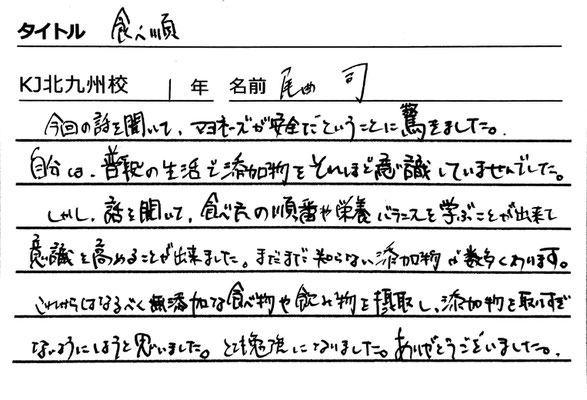 タイトル 食べ順
KJ北九州校 1年 名前 尾 司
今回の話を聞いて、マヨネーズが安全だということに驚きました。
自分は、普段の生活で添加物をそれほど意識していませんでした。
しかし、話を聞いて、食べ方の順番や栄養バランスを学ぶことが出来て
意識を高めることが出来ました。まだまだ知らない添加物が数多くあります。
これからはなるべく無添加な食べ物や飲み物を摂取し、添加物を取りすぎ
ないようにしようと思いました。とても勉強になりました。ありがとうございました。